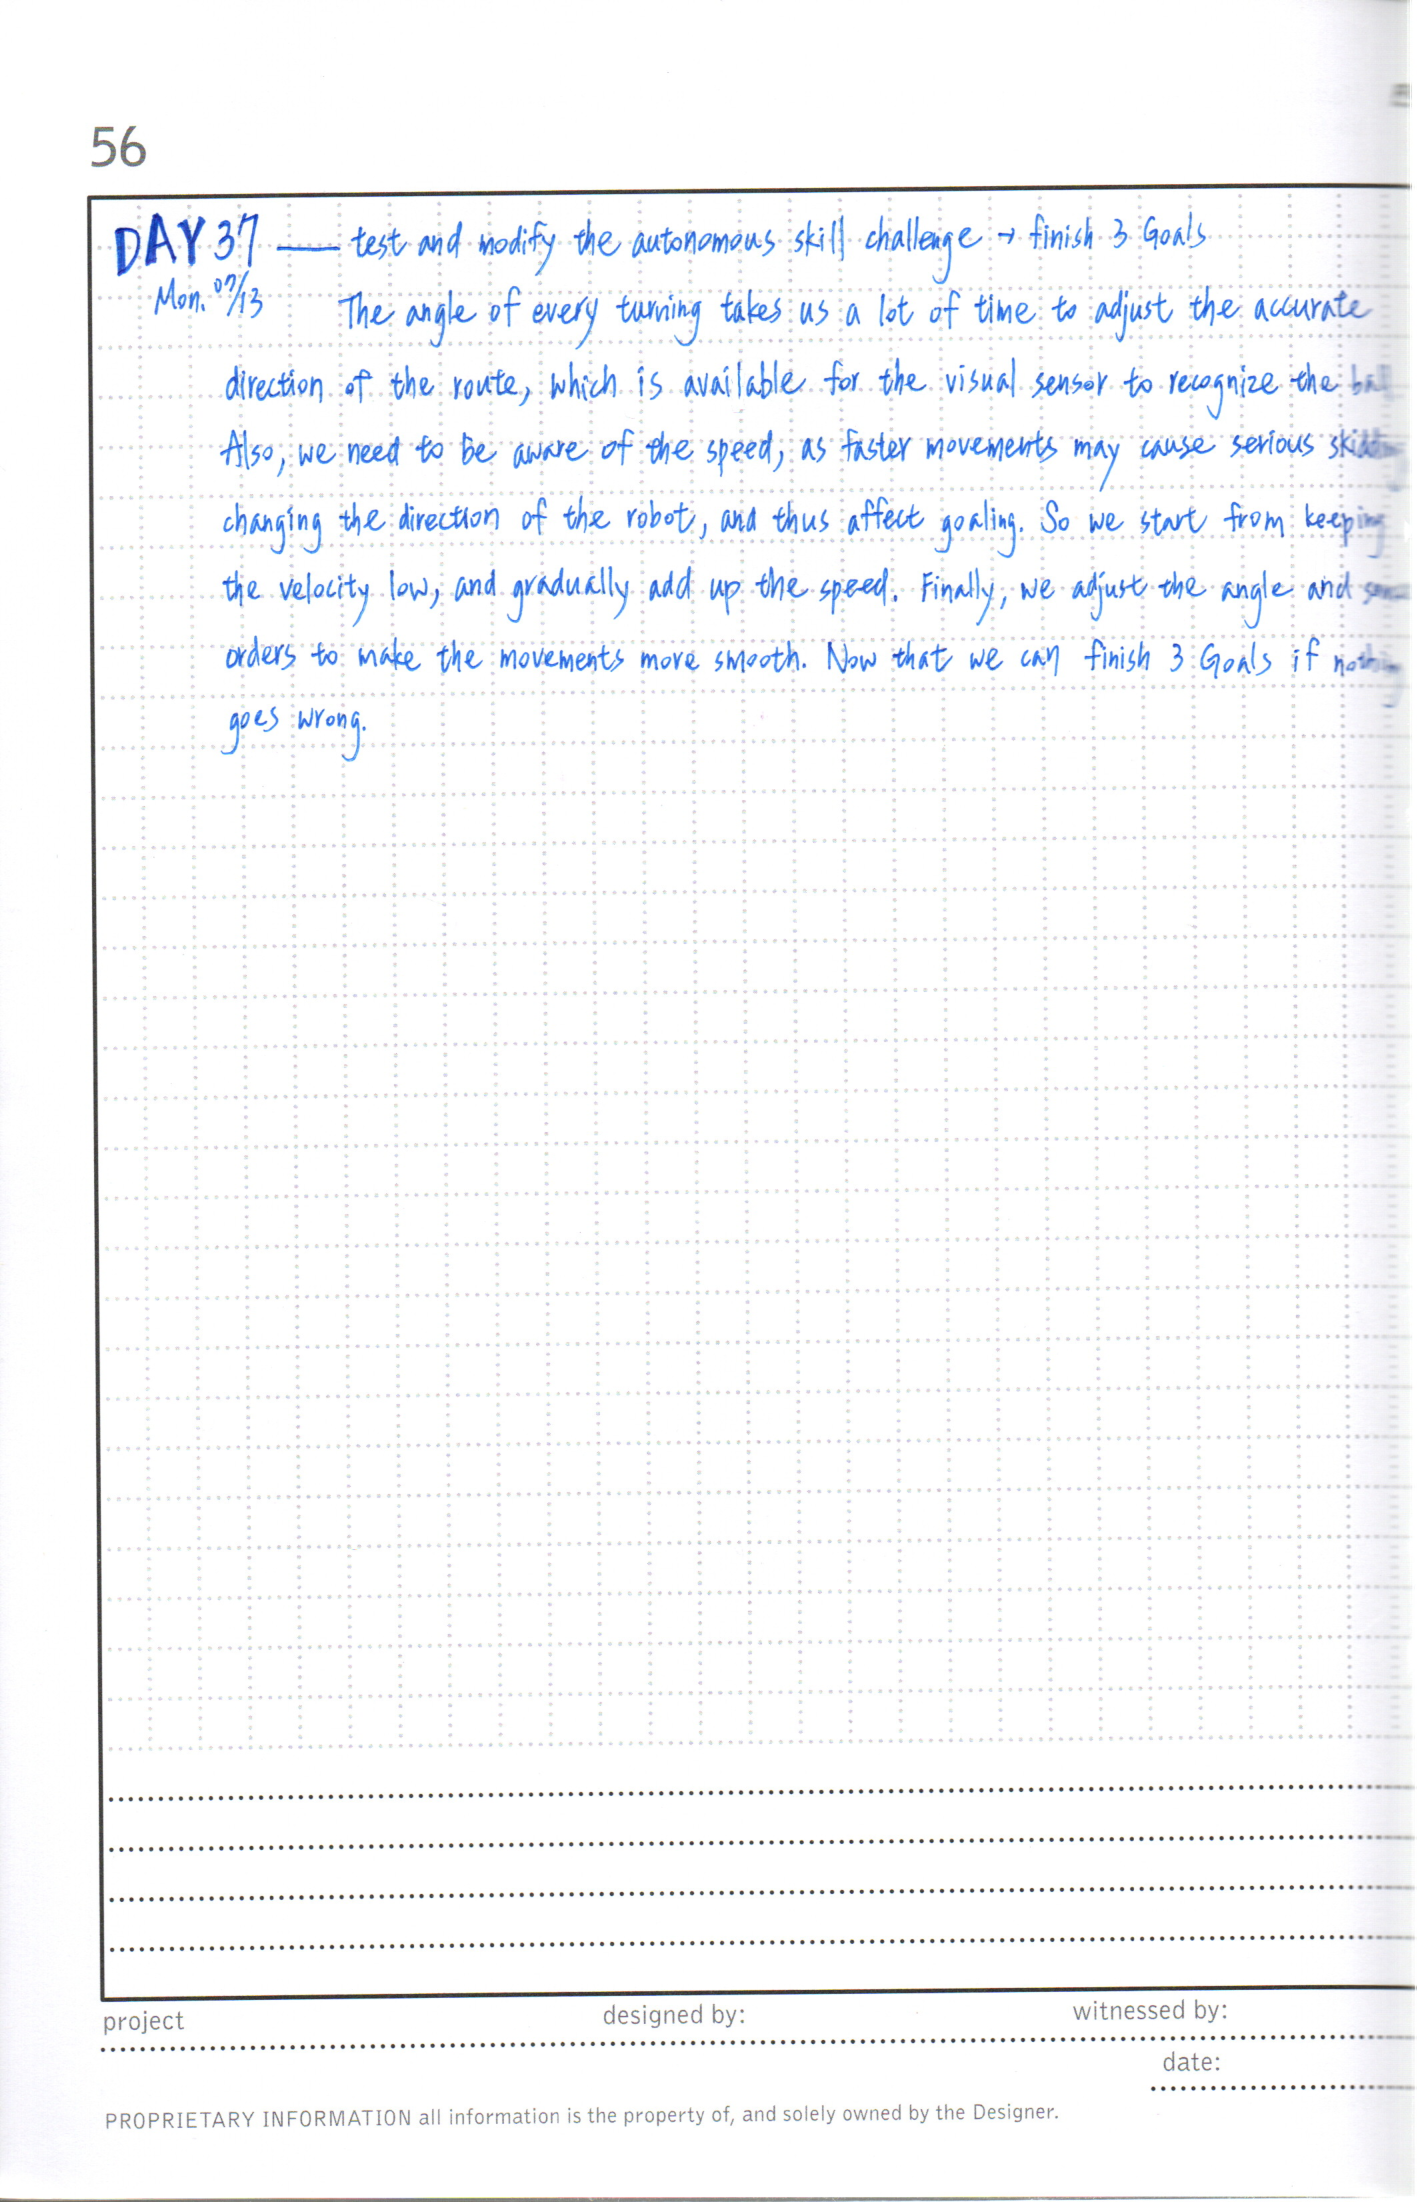 56
DAY 37 — test and modify the autonomous skill challenge → finish 3 Goals
Mon. 07/13 The angle of every turning takes us a lot of time to adjust the accurate
direction of the route, which is available for the visual sensor to recognize the ball
Also, we need to be aware of the speed, as faster movements may cause serious skidding
changing the direction of the robot, and thus affect goaling. So we start from keeping
the velocity low, and gradually add up the speed. Finally, we adjust the angle and
orders to make the movements more smooth. Now that we can finish 3 Goals if nothing
goes wrong.
project designed by: witnessed by:
date:
PROPRIETARY INFORMATION all information is the property of, and solely owned by the Designer.